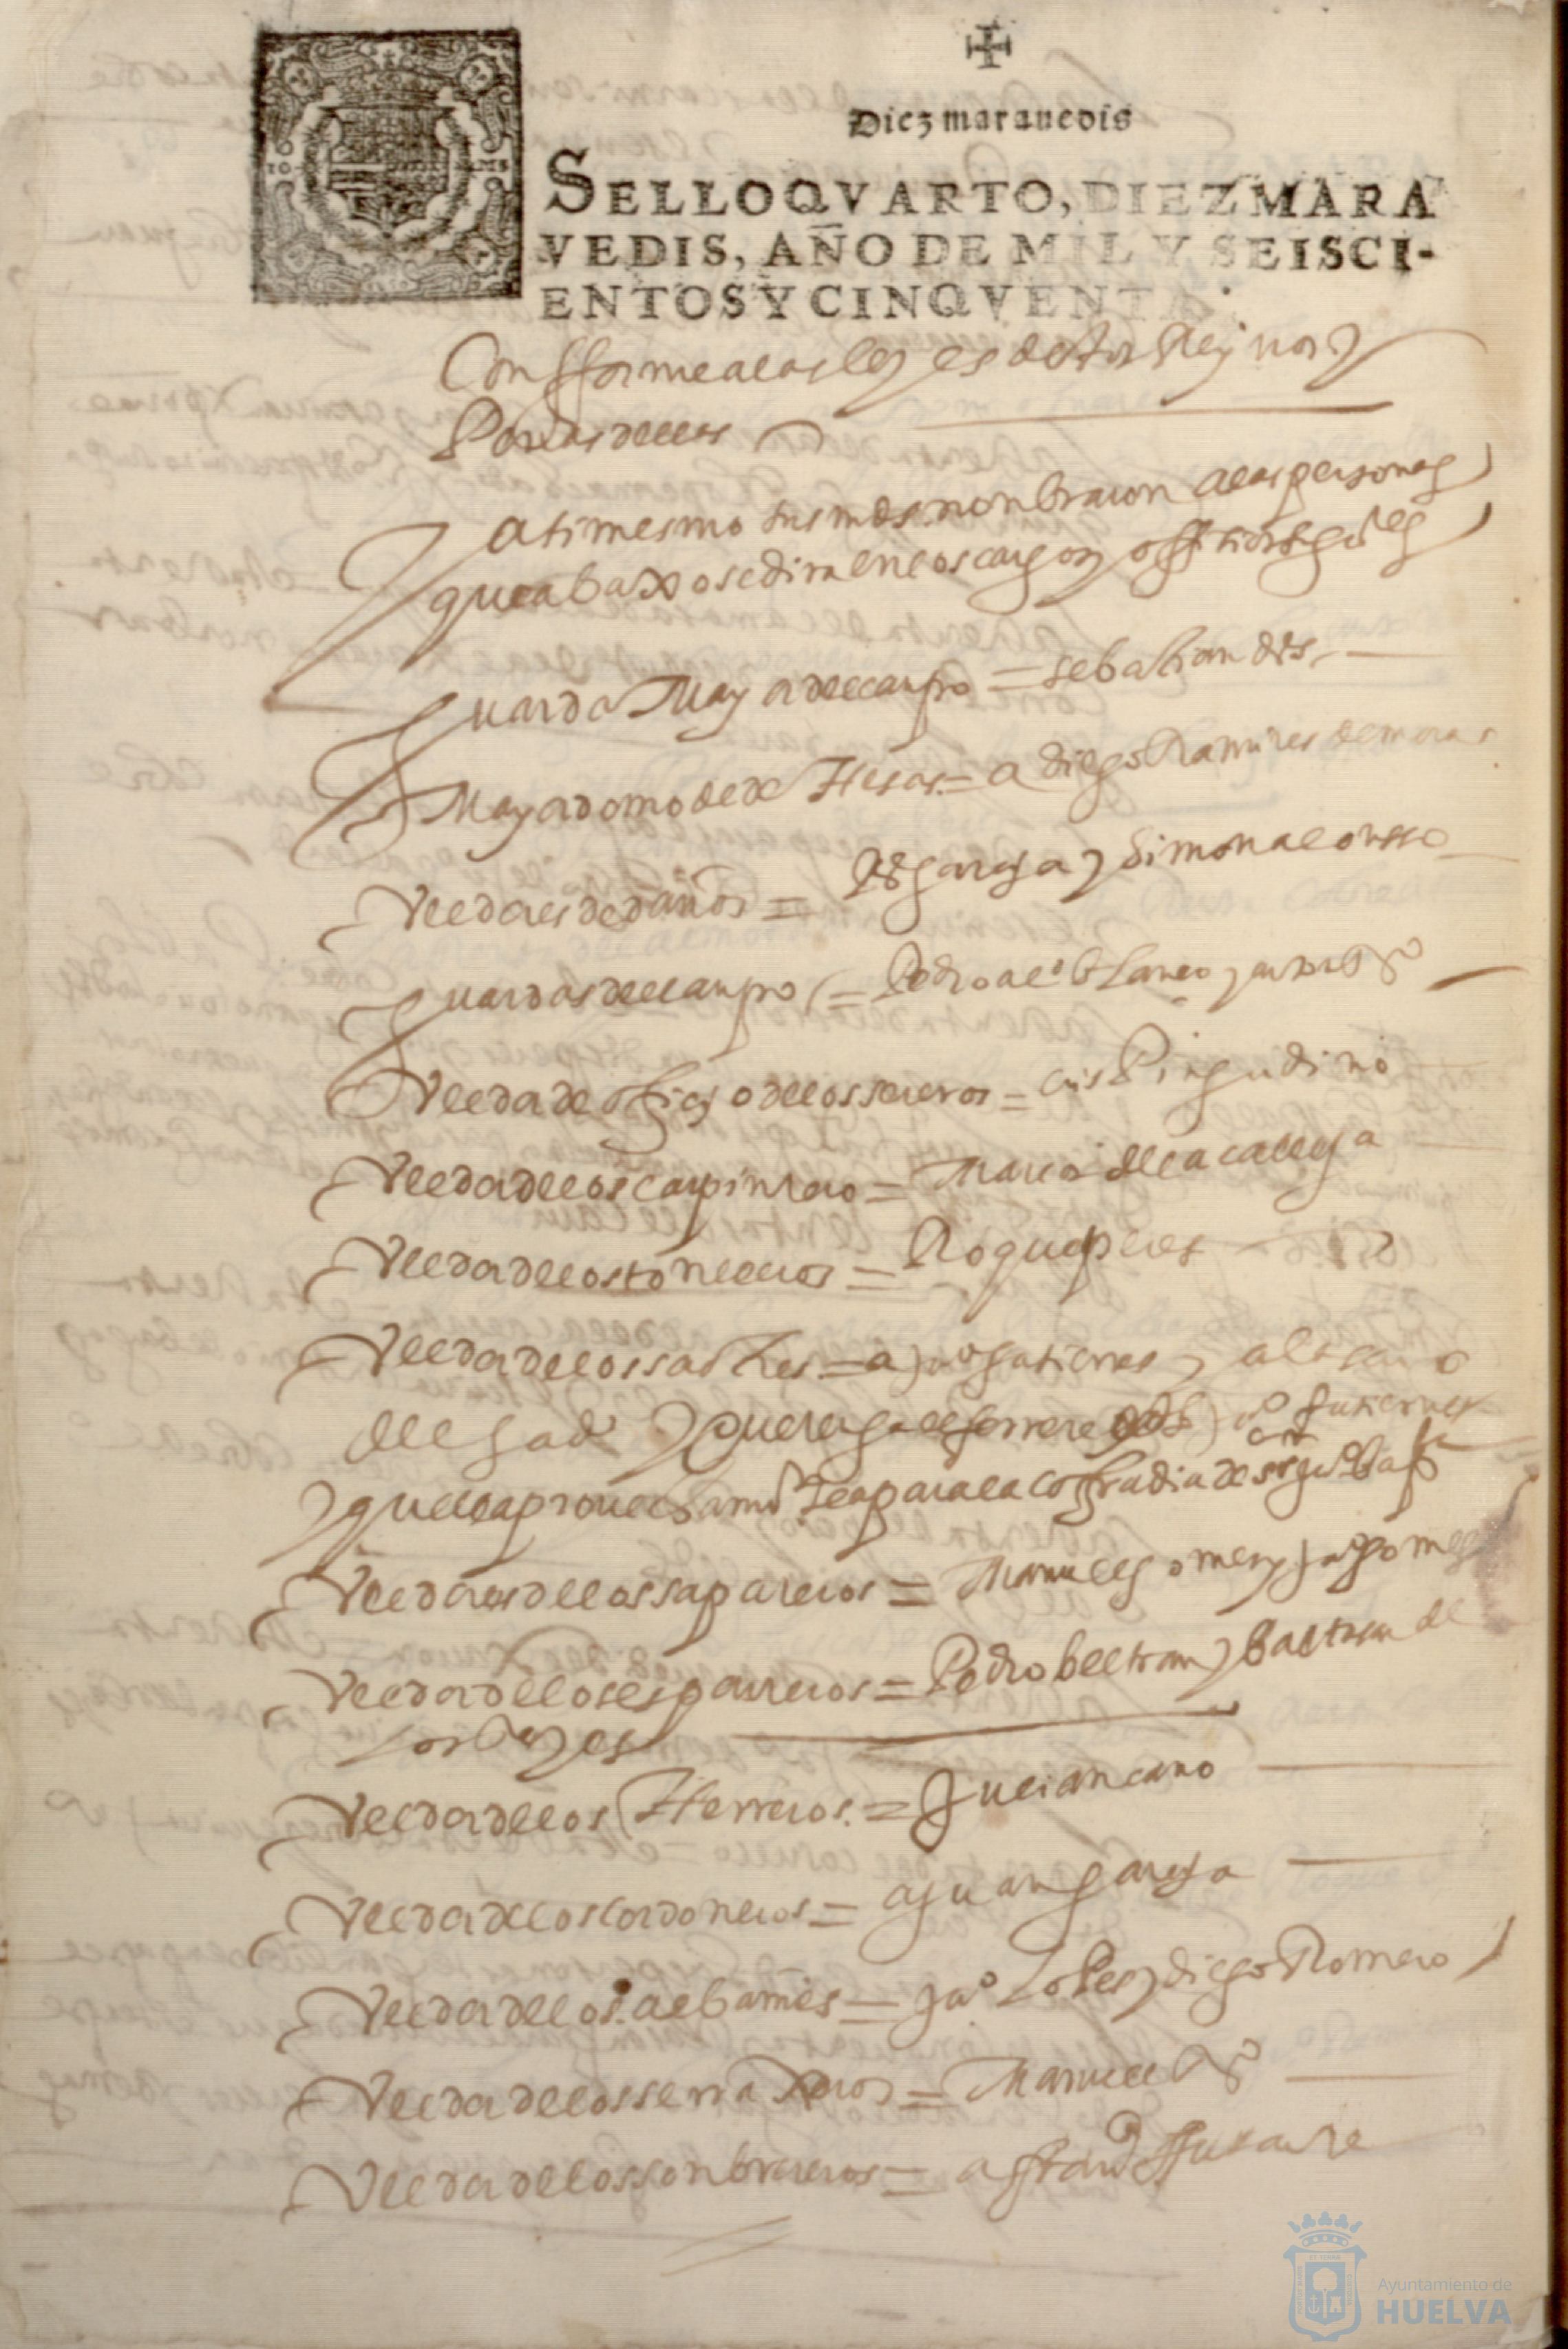 Diez marauedis
SELLO QVARTO, DIEZ MARA
VEDIS, AÑO DE MIL Y SEISCI-
ENTOS Y CINQVENTA.
Confforme a las leyes destos Reynos y
Penas dellas
Asimesmo sus mds. nonbraron a las personas
que abaxo se dira en los cargos y offisios sigtes
guarda Mayor del canpo = sebastian
Mayordomo de deHesas = a diego Ramires de mora
Veedores de daños = garcia y Simon alonsso
guardas del canpo = Pedro alo blanco y
Veedor de ofiçio de los sereros = luis Pingudino
Veedor de los carpintero = Marcos de la calleja
Veedor de los toneleros = Roque peres
Veedor de los sastres = a juo gutierres y
delgado y
y que
Veedores de los sapateros = Manuel gomes y juo gomes
Veedor de los esparteros = Pedro beltran y baltesar de
los Reyes
Veedor de los Herreros = Julian cano
Veedor de los cordoneros = a juan garcia
Veedor de los albañies = juo Lopes y diego Romero
Veedor de los serraxeros = Manuel
Veedor de los sonbrereros = a
Ayuntamiento de
HUELVA